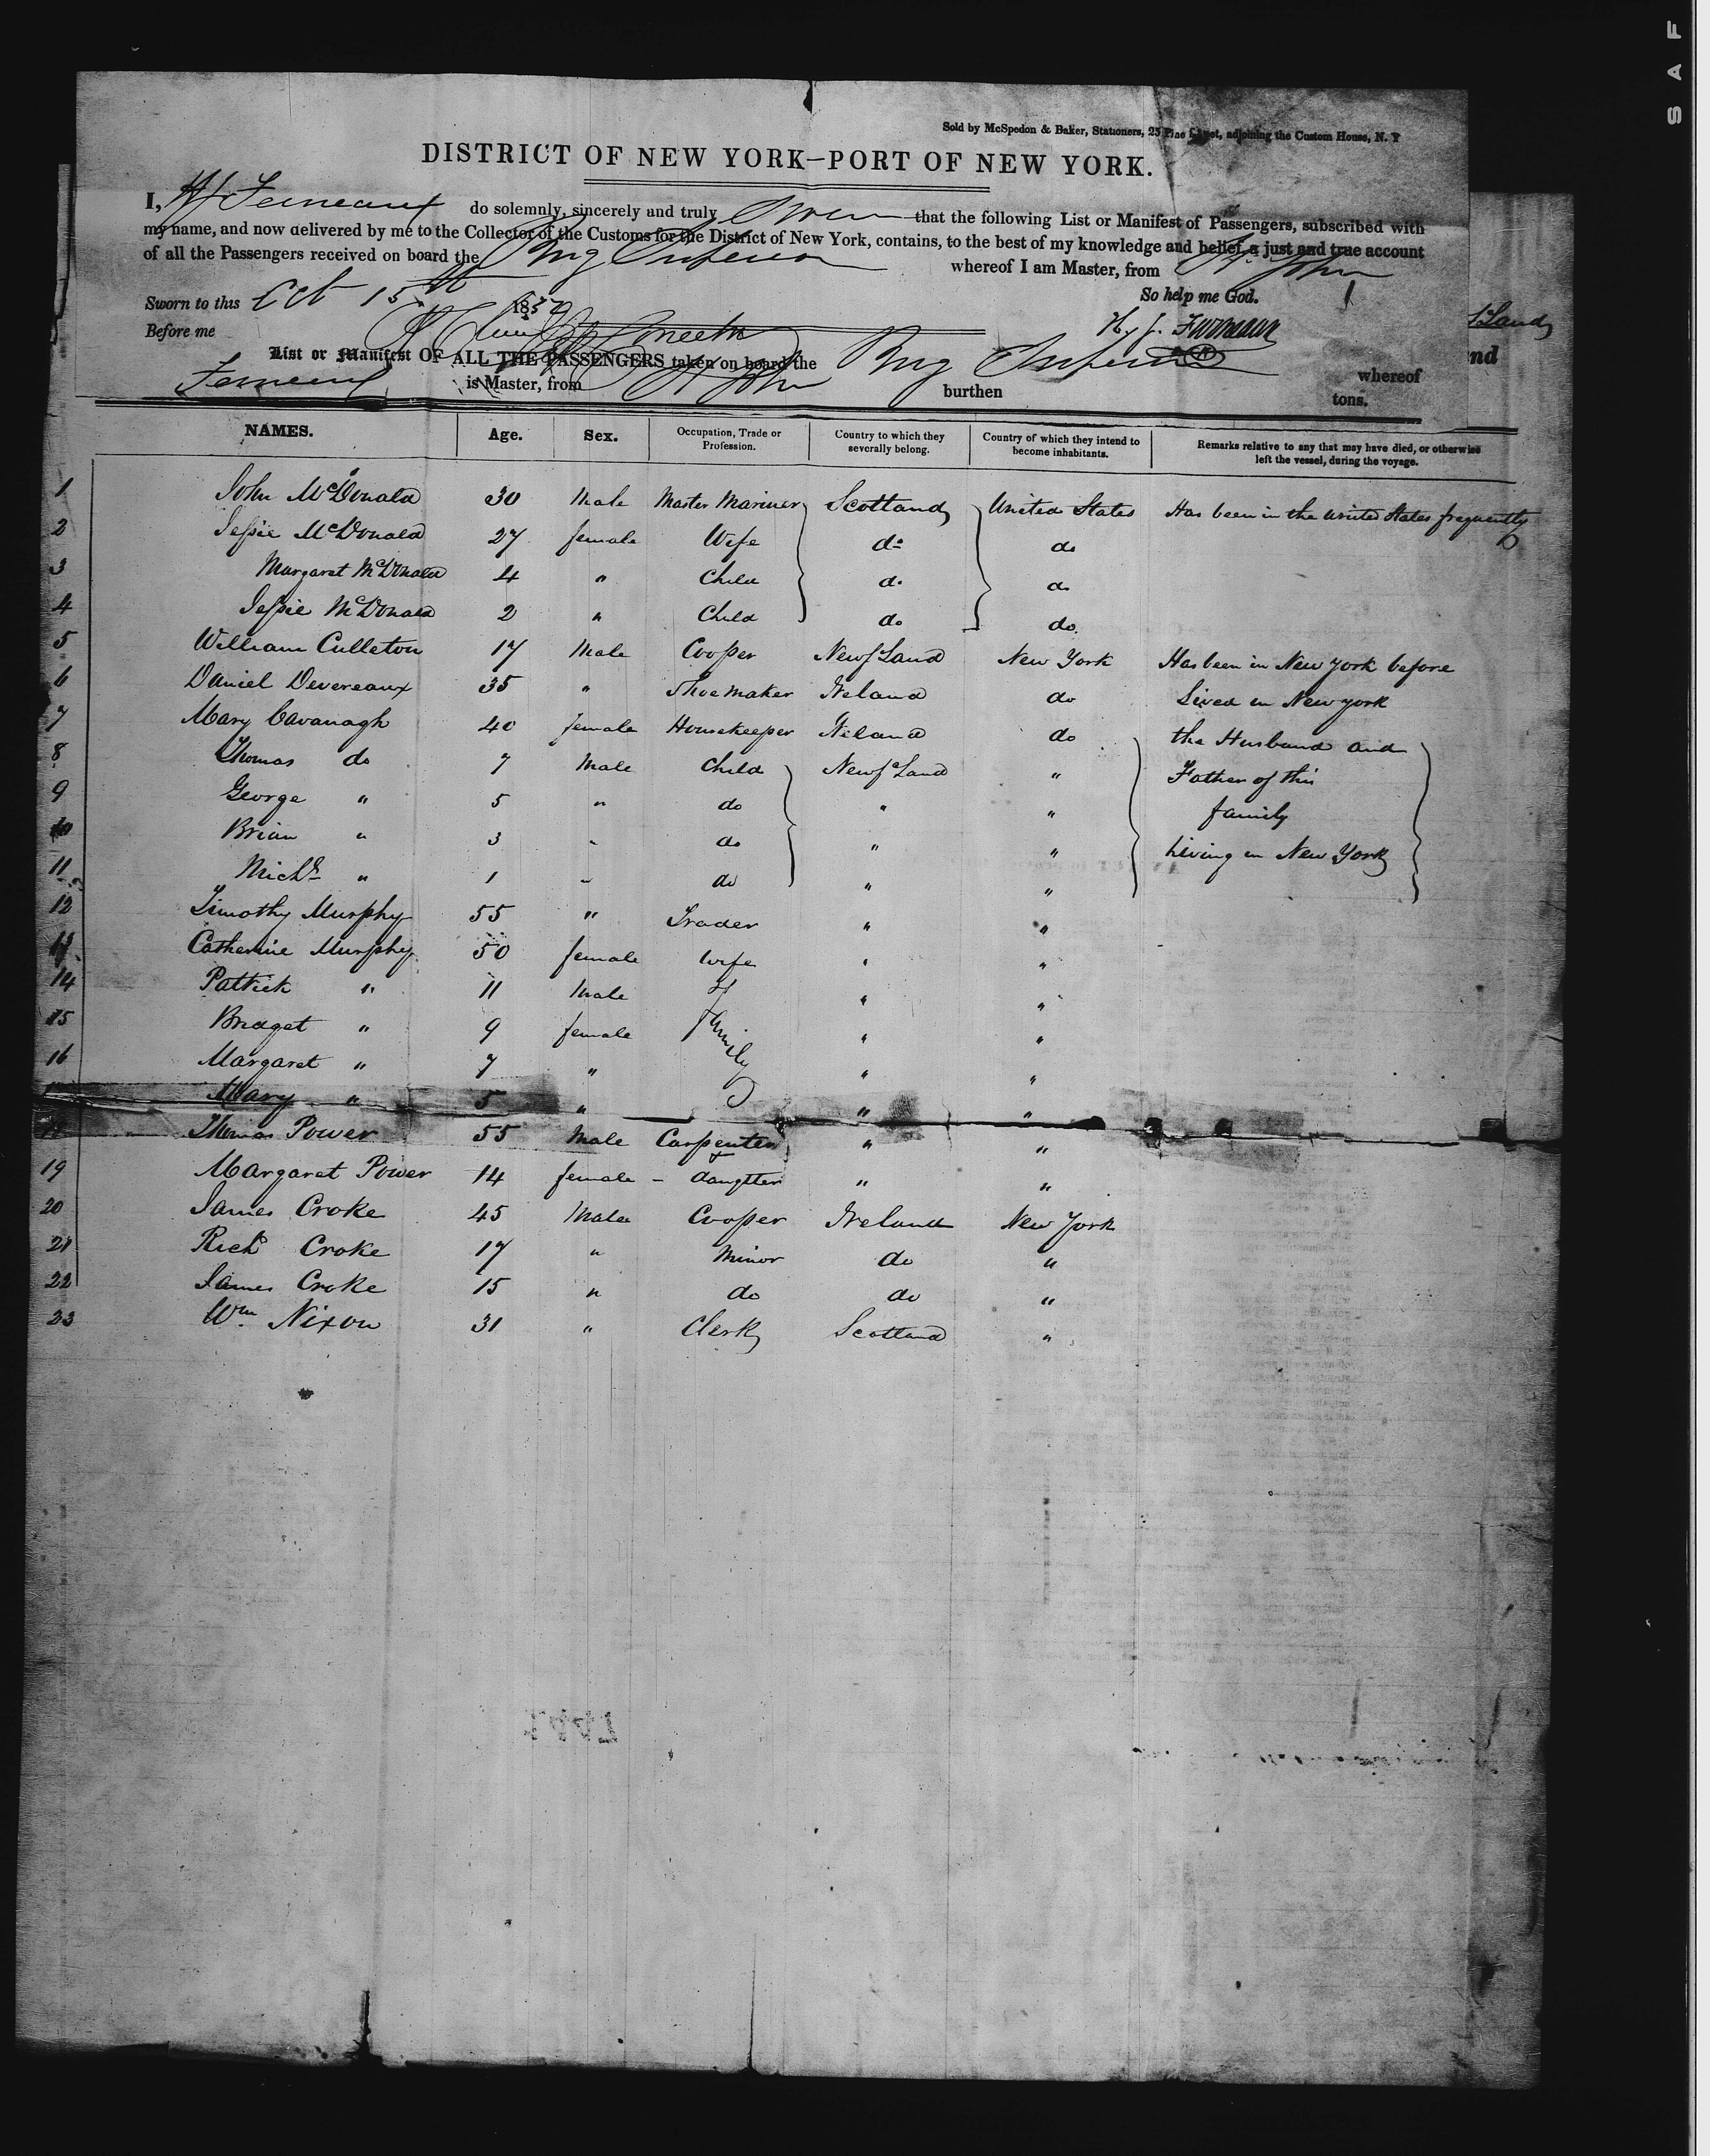 SAF
Sold by McSpedon & Baker, Stationers, 25 Pine Street, adjoining the Custom House, N. Y
DISTRICT OF NEW YORK—PORT OF NEW YORK.
I, do solemnly, sincerely and truly Swear that the following List or Manifest of Passengers, subscribed with
my name, and now delivered by me to the Collector of the Customs for the District of New York, contains, to the best of my knowledge and belief, a just and true account
of all the Passengers received on board the Brig whereof I am Master, from St John
Sworn to this Oct 15th 185 So help me God.
Before me
List or Manifest OF ALL THE PASSENGERS taken on board the Brig whereof
is Master, from St John burthen tons.
Land
nd
NAMES. Age. Sex. Occupation, Trade or Profession. Country to which they severally belong. Country of which they intend to become inhabitants. Remarks relative to any that may have died, or otherwise left the vessel, during the voyage.
1 John McDonald 30 Male Master Mariner Scotland United States Has been in the United States frequently
2 Jessie McDonald 27 female Wife do do
3 Margaret McDonald 4 " Child do do
4 Jessie McDonald 2 " Child do do
5 William Culleton 17 Male Cooper Newf Land New York Has been in New York before
6 Daniel Devereaux 35 " Shoemaker Ireland do Lived in New york
7 Mary Cavanagh 40 female Housekeeper Ireland do the Husband and
8 Thomas do 7 Male Child Newf Land " Father of this
9 George " 5 " do " " family
10 Brian " 3 " do " " Living in New York
11 Michl " 1 " do " "
12 Timothy Murphy 55 " Trader " "
13 Catherine Murphy 50 female Wife " "
14 Patrick " 11 Male " "
15 Bridget " 9 female family " "
16 Margaret " 7 " " "
Mary " 5 " " "
18 Thomas Power 55 Male Carpenter " "
19 Margaret Power 14 female - daugtter " "
20 James Croke 45 Male Cooper Ireland New York
21 Richd Croke 17 " Minor do "
22 James Croke 15 " do do "
23 Wm Nixon 31 " Clerk Scotland "